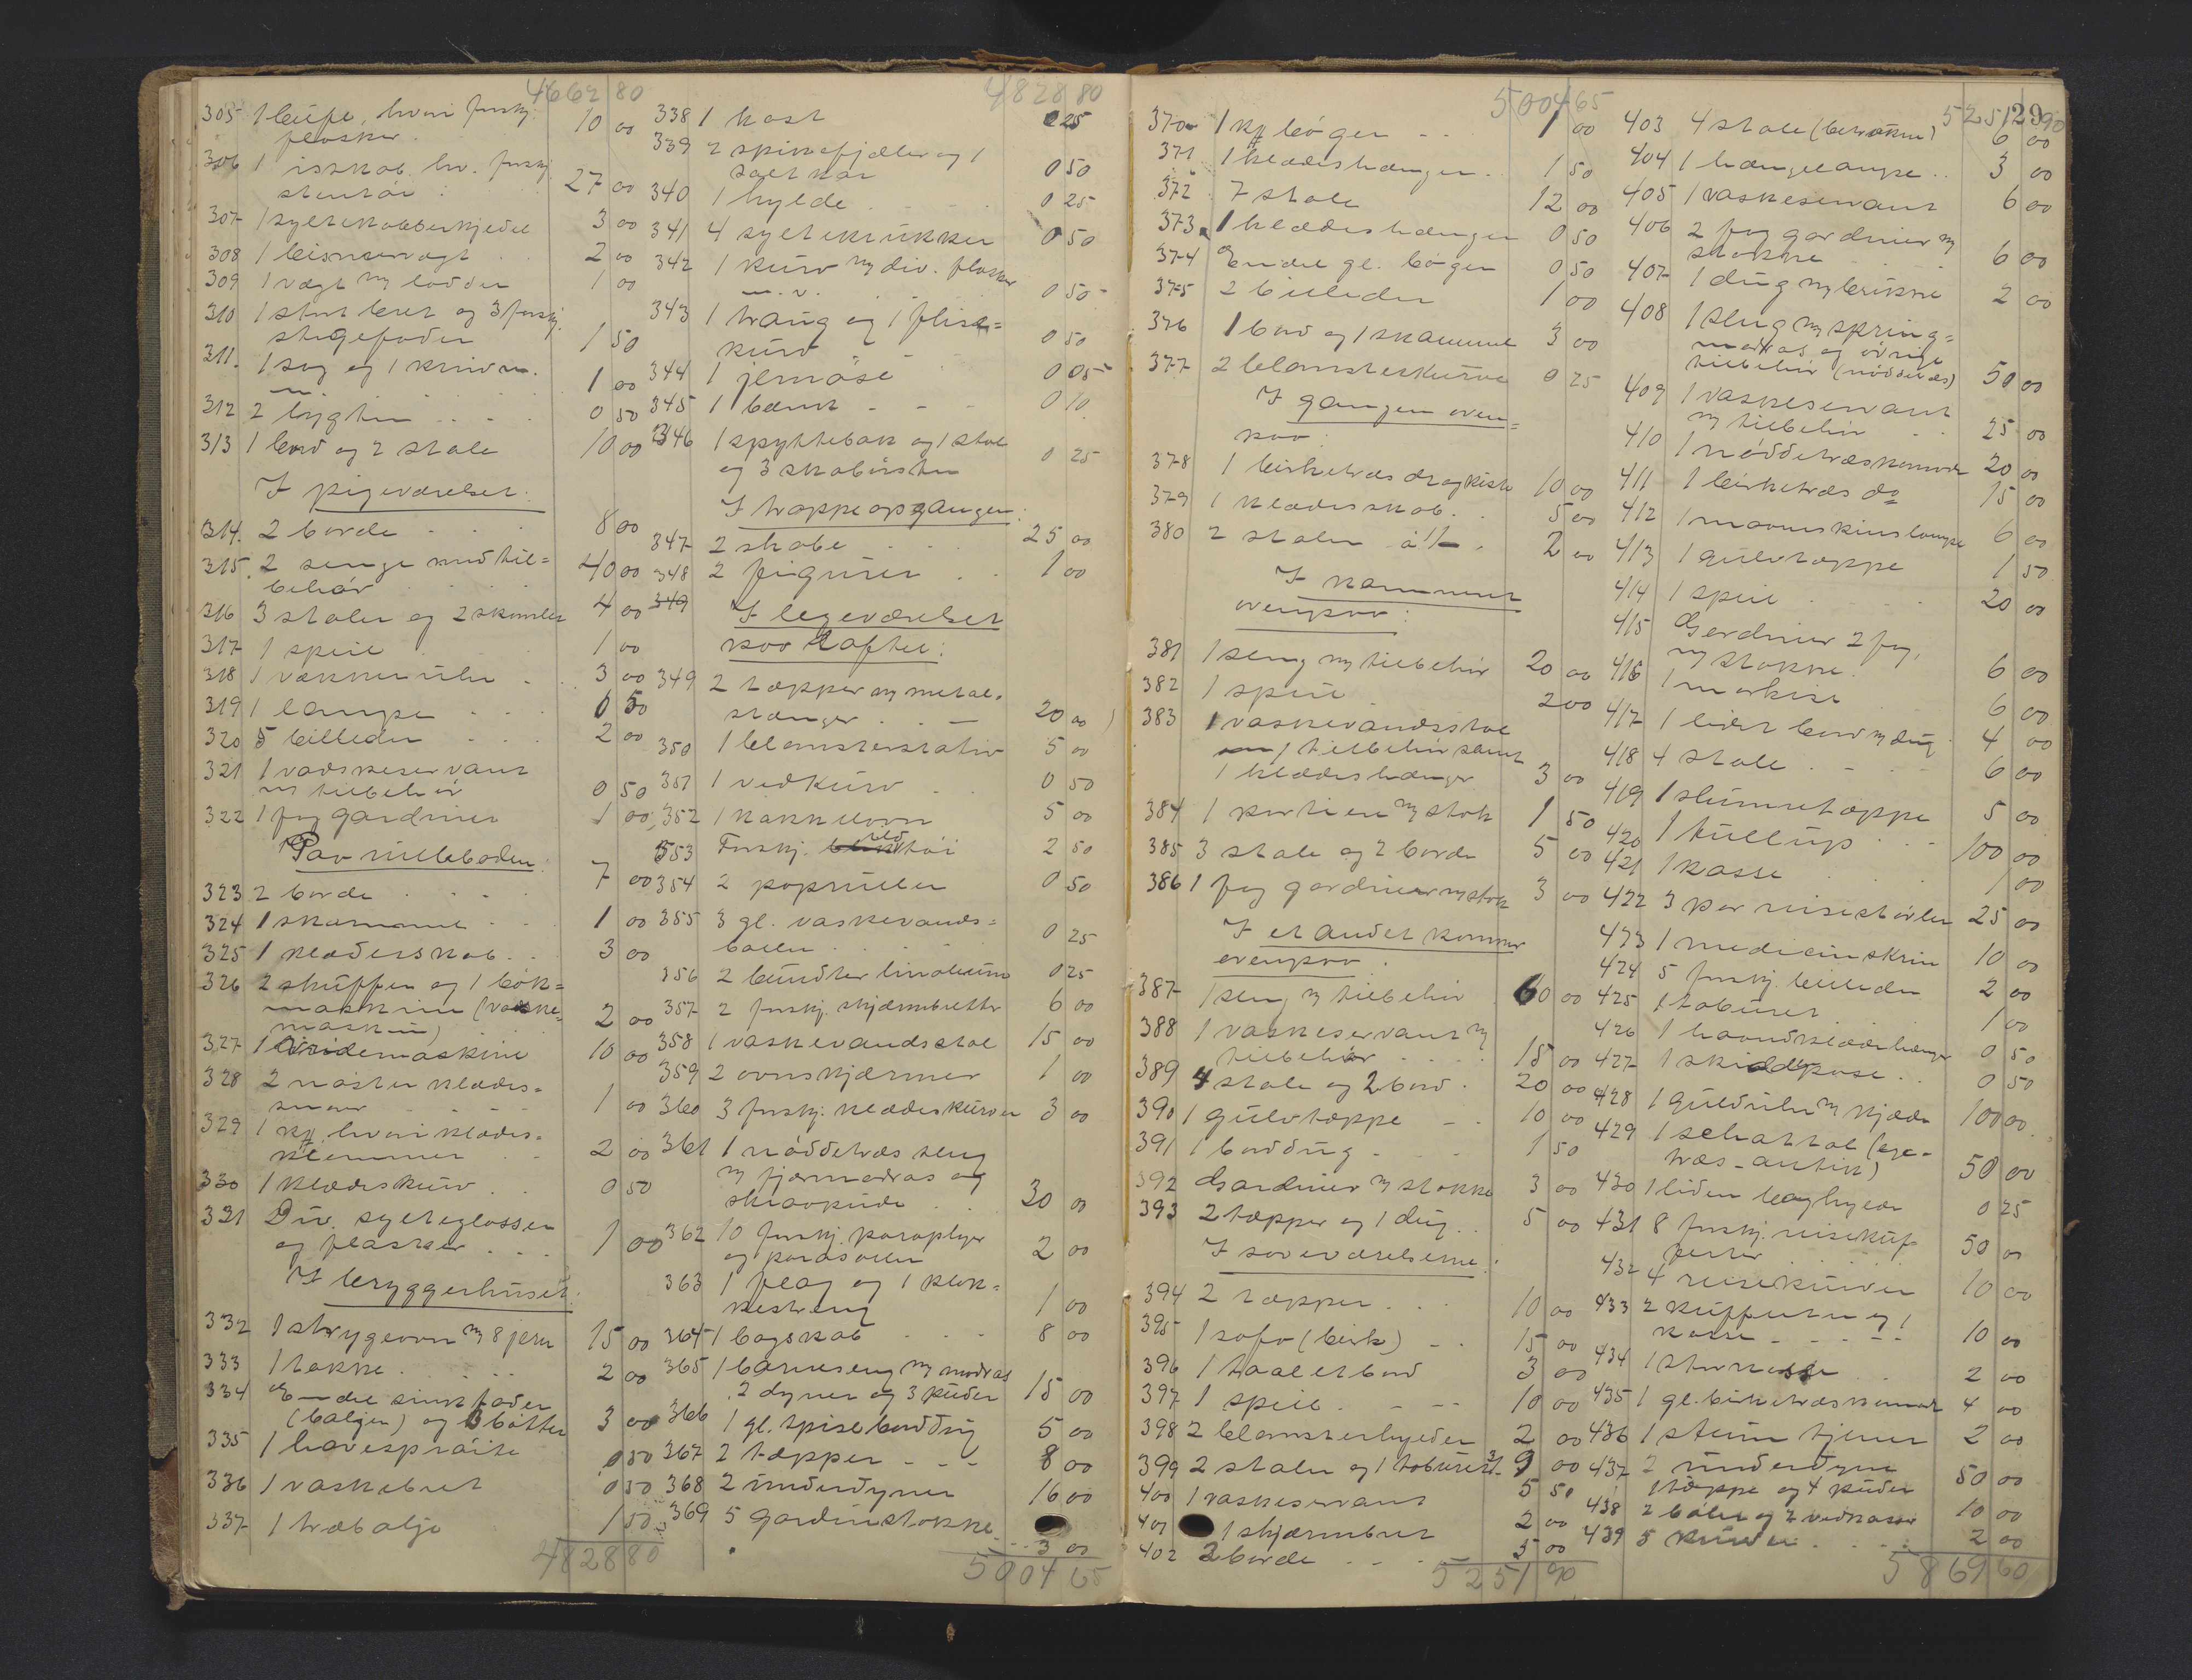 4662 80
305 1 leife, hvori forskj.
flasker. 10 00
306 1 isskab, hv. forskj.
stentøi 27 00
307 1 syltekobberkjedel 3 00
308 1 bismervægt 2 00
309 1 vægt m lodder 1 00
310 1 stort bret og 3 forskj.
stegefader 1 50
311. 1 sag og 1 kniv m.
m. 1 00
312 2 lygter 0 50
313 1 bord og 2 stole 10 00
I pigeværelset:
314. 2 borde 8 00
315. 2 senge med til=
behør 40 00
316 3 stoler og 2 skamler 4 00
317 1 speil 1 00
318 1 vækkerur 3 00
319 1 lampe 0 50
320 5 billeder 2 00
321 1 vadskeservant
m tilbehør 0 50
322 1 fag gardiner 1 00
Paa rulleboden:
323 2 borde 7 00
324 1 skammel 1 00
325 1 klæderskab 3 00
326 2 skuffer og 1 bøk=
maskine (vaske=
maskin) 2 00
327 1 vridemaskine 10 00
328 2 nøster klædes=
snor 1 00
329 1 kf. hvori klædes=
klemmer 2 00
330 1 klædeskurv 0 50
331 Div. sylteglasser
og flasker 1 00
I bryggerhuset:
332 1 strygeovn m 8 jern 15 00
333 1 takke 2 00
334 En del sinkfader
(baljer) og 3 bøtter 3 00
335 1 havesprøite 0 50
336 1 vaskebret 0 50
337 1 træbalje 1 50
4828 80
4828 80
338 1 kost 0 25
339 2 spikefjæler og 1
saltkar 0 50
340 1 hylde 0 25
341 4 syltekrukker 0 50
342 1 kurv m div. flasker
m. v. 0 50
343 1 traug og 1 flise=
kurv 0 50
344 1 jernøse 0 05
345 1 bænk 0 10
346 1 spyttebak og 1 stol
og 3 skobørster 0 25
I trappeopgangen:
347 2 skabe 25 00
348 2 figurer 1 00
349 I legeværelset
paa loftet:
349 2 tæpper m metal=
stænger 20 00
350 1 blomsterstativ 5 00
351 1 vedkurv 0 50
352 1 kakkelovn 5 00
353 Forskj. tøi 2 50
354 2 papruller 0 50
355 3 gl. vaskevands=
boller 0 25
356 2 bundter linoleum 0 25
357 2 forskj. skjærmbretter 6 00
358 1 vaskevandsstol 15 00
359 2 ovnskjærmer 1 00
360 3 forskj. klædeskurver 3 00
361 1 nøddetræs seng
m fjærmadras og
skraapude 30 00
362 10 forskj. paraplyer
og parasoller 2 00
363 1 flag og 1 klok=
kestreng 1 00
364 1 bogskab 8 00
365 1 barneseng m madras
2 dyner og 3 puder 15 00
366 1 gl. spisebordsdug 5 00
367 2 tæpper 8 00
368 2 underdyner 16 00
369 5 gardinstokke
3 00
5004 65
5004 65
370 1 kf. bøger 1 00
371 1 klædeshænger 1 50
372 7 stole 12 00
373 1 klædeshænger 0 50
374 En del gl. bøger 0 50
375 2 billeder 1 00
376 1 bord og 1 skammel 3 00
377 2 blomsterkurve 0 25
I gangen oven=
paa:
378 1 birketræs dragkiste 10 00
379 1 klædesskab 5 00
380 2 stoler à 1/- 2 00
I kammeret
ovenpaa:
381 1 seng m tilbehør 20 00
382 1 speil 2 00
383 1 vaskevandsstol
1 tilbehør samt
1 klædeshænger 3 00
384 1 portiere m stok 1 50
385 3 stole og 2 borde 5 00
386 1 fag gardiner m stok 3 00
I et andet kammer
ovenpaa:
387 1 seng m tilbehør 60 00
388 1 vaskeservant m
tilbehør 15 00
389 4 stole og 2 bord 20 00
390 1 gulvtæppe 10 00
391 1 borddug 1 50
392 Gardiner m stokke 3 00
393 2 tæpper og 1 dug 5 00
I soveværelserne:
394 2 tæpper 10 00
395 1 sofa (birk) 15 00
396 1 toaletbord 3 00
397 1 speil 10 00
398 2 blomsterhylder 2 00
399 2 stoler og 1 taburet 9 00
400 1 vaskeservant 5 50
401 1 skjærmbret 2 00
402 2 borde 5 00
5251 90
5251 90
129
403 4 stole (betrukne) 6 00
404 1 hængelampe 3 00
405 1 vaskeservant 6 00
406 2 fag gardiner m
stokke 6 00
407 1 dug m brikke 2 00
408 1 seng m spring=
madras og øvrige
tilbehør (nøddetræs) 50 00
409 1 vaskeservant
m tilbehør 25 00
410 1 nøddetræskomode 20 00
411 1 birketræs do 15 00
412 1 maaneskinslampe 6 00
413 1 gulvtæppe 1 50
414 1 speil 20 00
415 Gardiner 2 fag,
m stokke 6 00
416 1 markise 6 00
417 1 lidet bord m dug 4 00
418 4 stole 6 00
419 1 slummetæppe 5 00
420 1 tullup 100 00
421 1 kasse 1 00
422 3 par reisestøvler 25 00
423 1 medicinskrin 10 00
424 5 forskj. billeder 2 00
425 1 taburet 1 00
426 1 haandklædehænger 0 50
427 1 skiddepose 0 50
428 1 guldur m kjæde 100 00
429 1 schattol (ege=
træs-antik) 50 00
430 1 liden baghylde 0 25
431 8 forskj. reisekuf=
ferter 50 00
432 4 reisekurver 10 00
433 2 kufferter og 1
kasse 10 00
434 1 stor kasse 2 00
435 1 gl. birketræskomode 4 00
436 1 stum tjener 2 00
437 2 underdyne
1 tæppe og 4 puder 50 00
438 2 baller og 2 vedkasser 10 00
439 5 kurver 2 00
5869 60